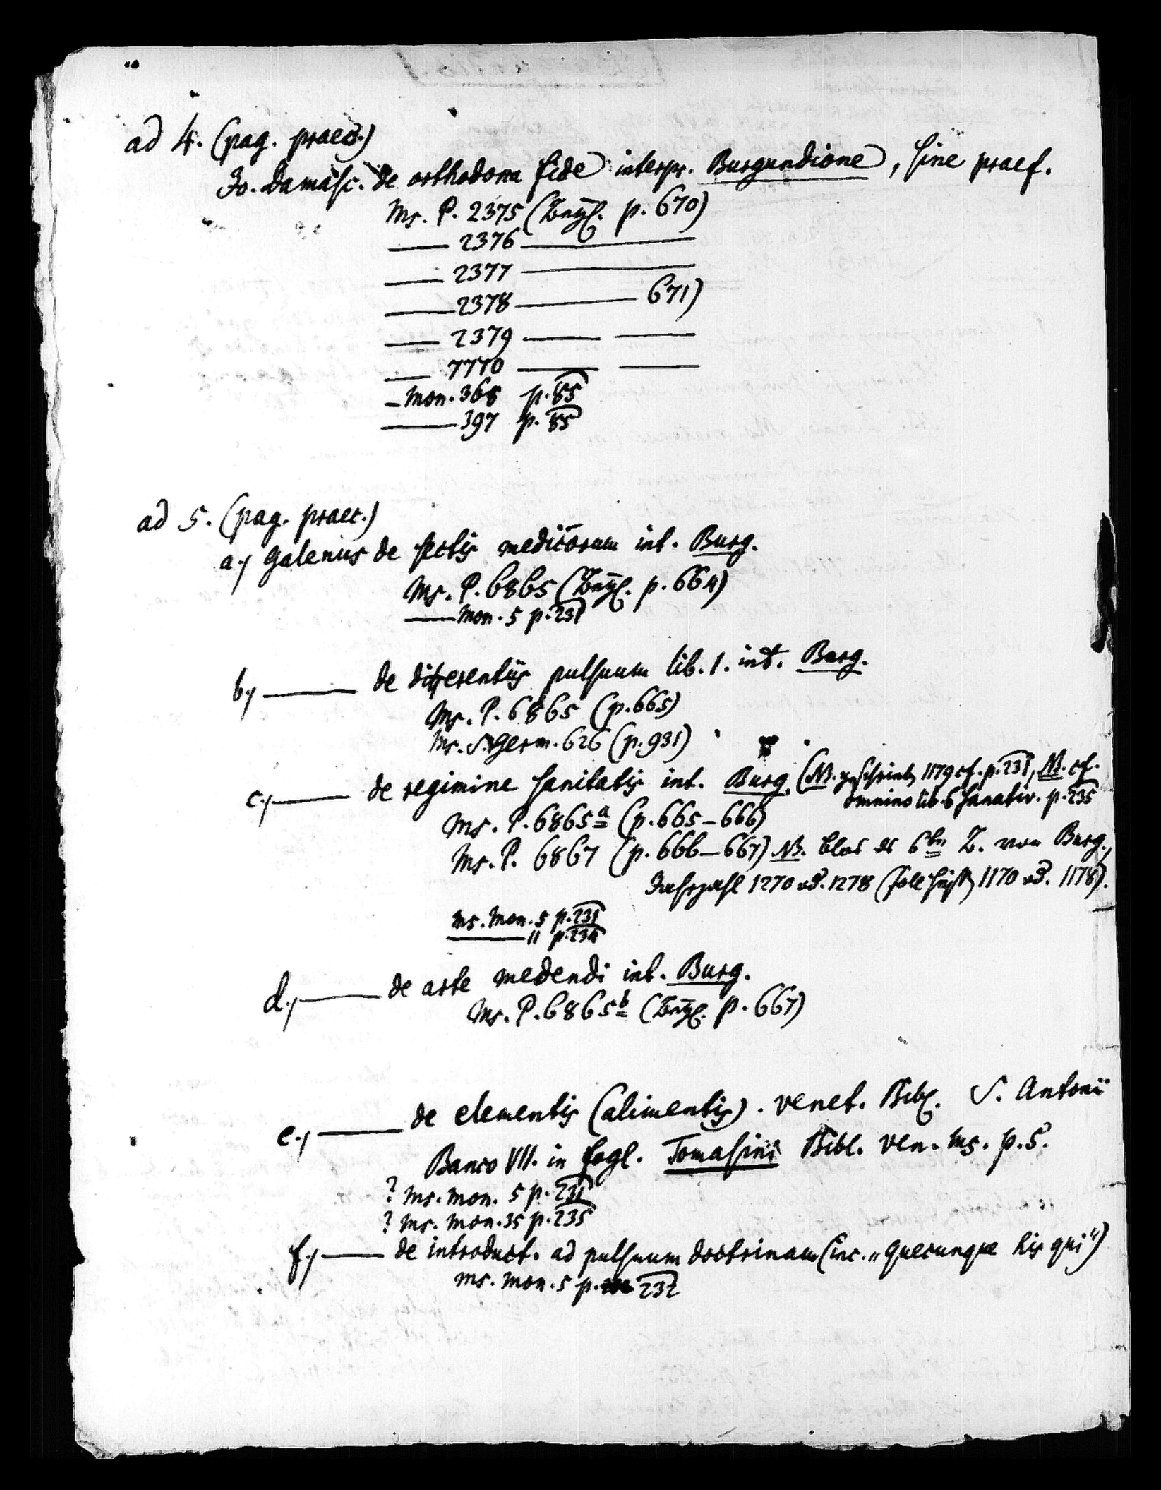 ad 4. (pag. praec.)
Jo. Damasc. de orthodoxa fide interpr. Burgundione, sine praef.
Ms. P. 2375 (p. 670)
—— 2376 ————
—— 2377 ————
—— 2378 ———— 671)
—— 2379 —— ——
—— 7770 —— ——
— Mon. 368 p. 85
—— 397 p. 85
ad 5. (pag. praec.)
a.) Galenus de sectis medicorum int. Burg.
Ms. P. 6865 (p. 664)
—— Mon. 5 p. 231
b.) —— de differentiis pulsuum lib. 1. int. Burg.
Ms. P. 6865 (p. 665)
Ms. S. Germ. 626 (p. 931)
c.) —— de regimine sanitatis int. Burg. (NB. 1179 cf. p. 231, NB. cf.
omnino lib. 6 sanativ. p. 235
Ms. P. 6865 a (p. 665–666)
Ms. P. 6867 (p. 666–667) NB. blos von Burg.,
Jahrzahl 1270 od. 1278 1170 od. 1178).
Ms. Mon. 5 p. 231
—— 11 p. 234
d.) —— de arte medendi int. Burg.
Ms. P. 6865 b (p. 667)
e.) —— de elementis (alimentis). Venet. Bibl. S. Antonii
Banco VII. in fogl. Tomasini Bibl. Ven. Ms. p. 5.
? Ms. Mon. 5 p. 231
? Ms. Mon. 35 p. 235
f.) —— de introduct. ad pulsuum doctrinam (inc. „Quecunque his qui“)
Ms. Mon. 5 p. 232